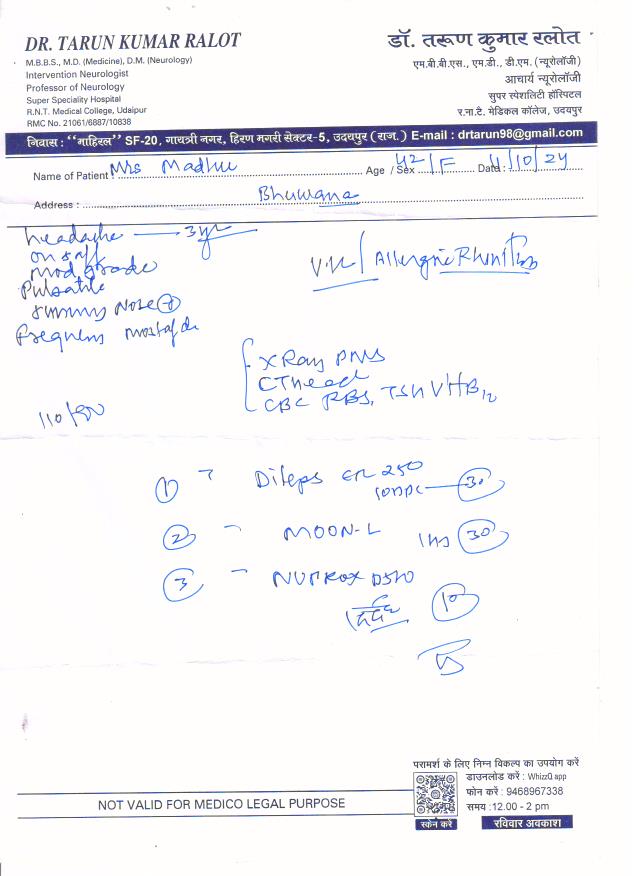 DR. TARUN KUMAR RALOT
M.B.B.S., M.D. (Medicine), D.M. (Neurology)
Intervention Neurologist
Professor of Neurology
Super Speciality Hospital
R.N.T. Medical College, Udaipur
RMC No. 21061/6887/10838
डॉ. तरूण कुमार रलोत
एम.बी.बी.एस., एम.डी., डी.एम. (न्यूरोलॉजी)
आचार्य न्यूरोलॉजी
सुपर स्पेशलिटी हॉस्पिटल
र.ना.टै. मेडिकल कॉलेज, उदयपुर
निवास : "माहिरल" SF-20, गायत्री नगर, हिरण मगरी सेक्टर-5, उदयपुर (राज.) E-mail : drtarun98@gmail.com
Name of Patient Mrs Madhu Age / Sex 42/F Date : 4/10/24
Address : Bhuwana
headache — 3yr
on & off
mod grade
Pulsatile
running Nose +
Allergic Rhinitis
X Ray PNS
CT head
CBC RBS, TSH Vit B12
110/80
1 Dileps ER 250
30
2 MOON-L 1hs 30
3 D500
दर्द 10
परामर्श के लिए निम्न विकल्प का उपयोग करें
डाउनलोड करें : WhizzQ app
फोन करें : 9468967338
समय :12.00 - 2 pm
स्कैन करें रविवार अवकाश
NOT VALID FOR MEDICO LEGAL PURPOSE